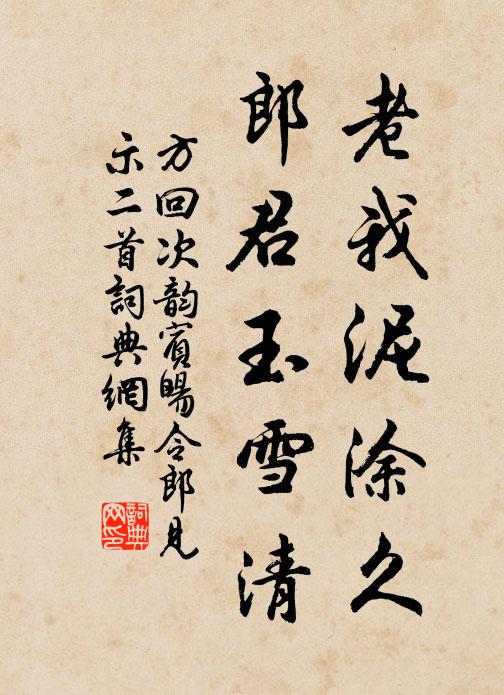 老我泥涂久
郎君玉雪清
方回次韵賓暘令郎見
示二首詞典網集
詞典
网印